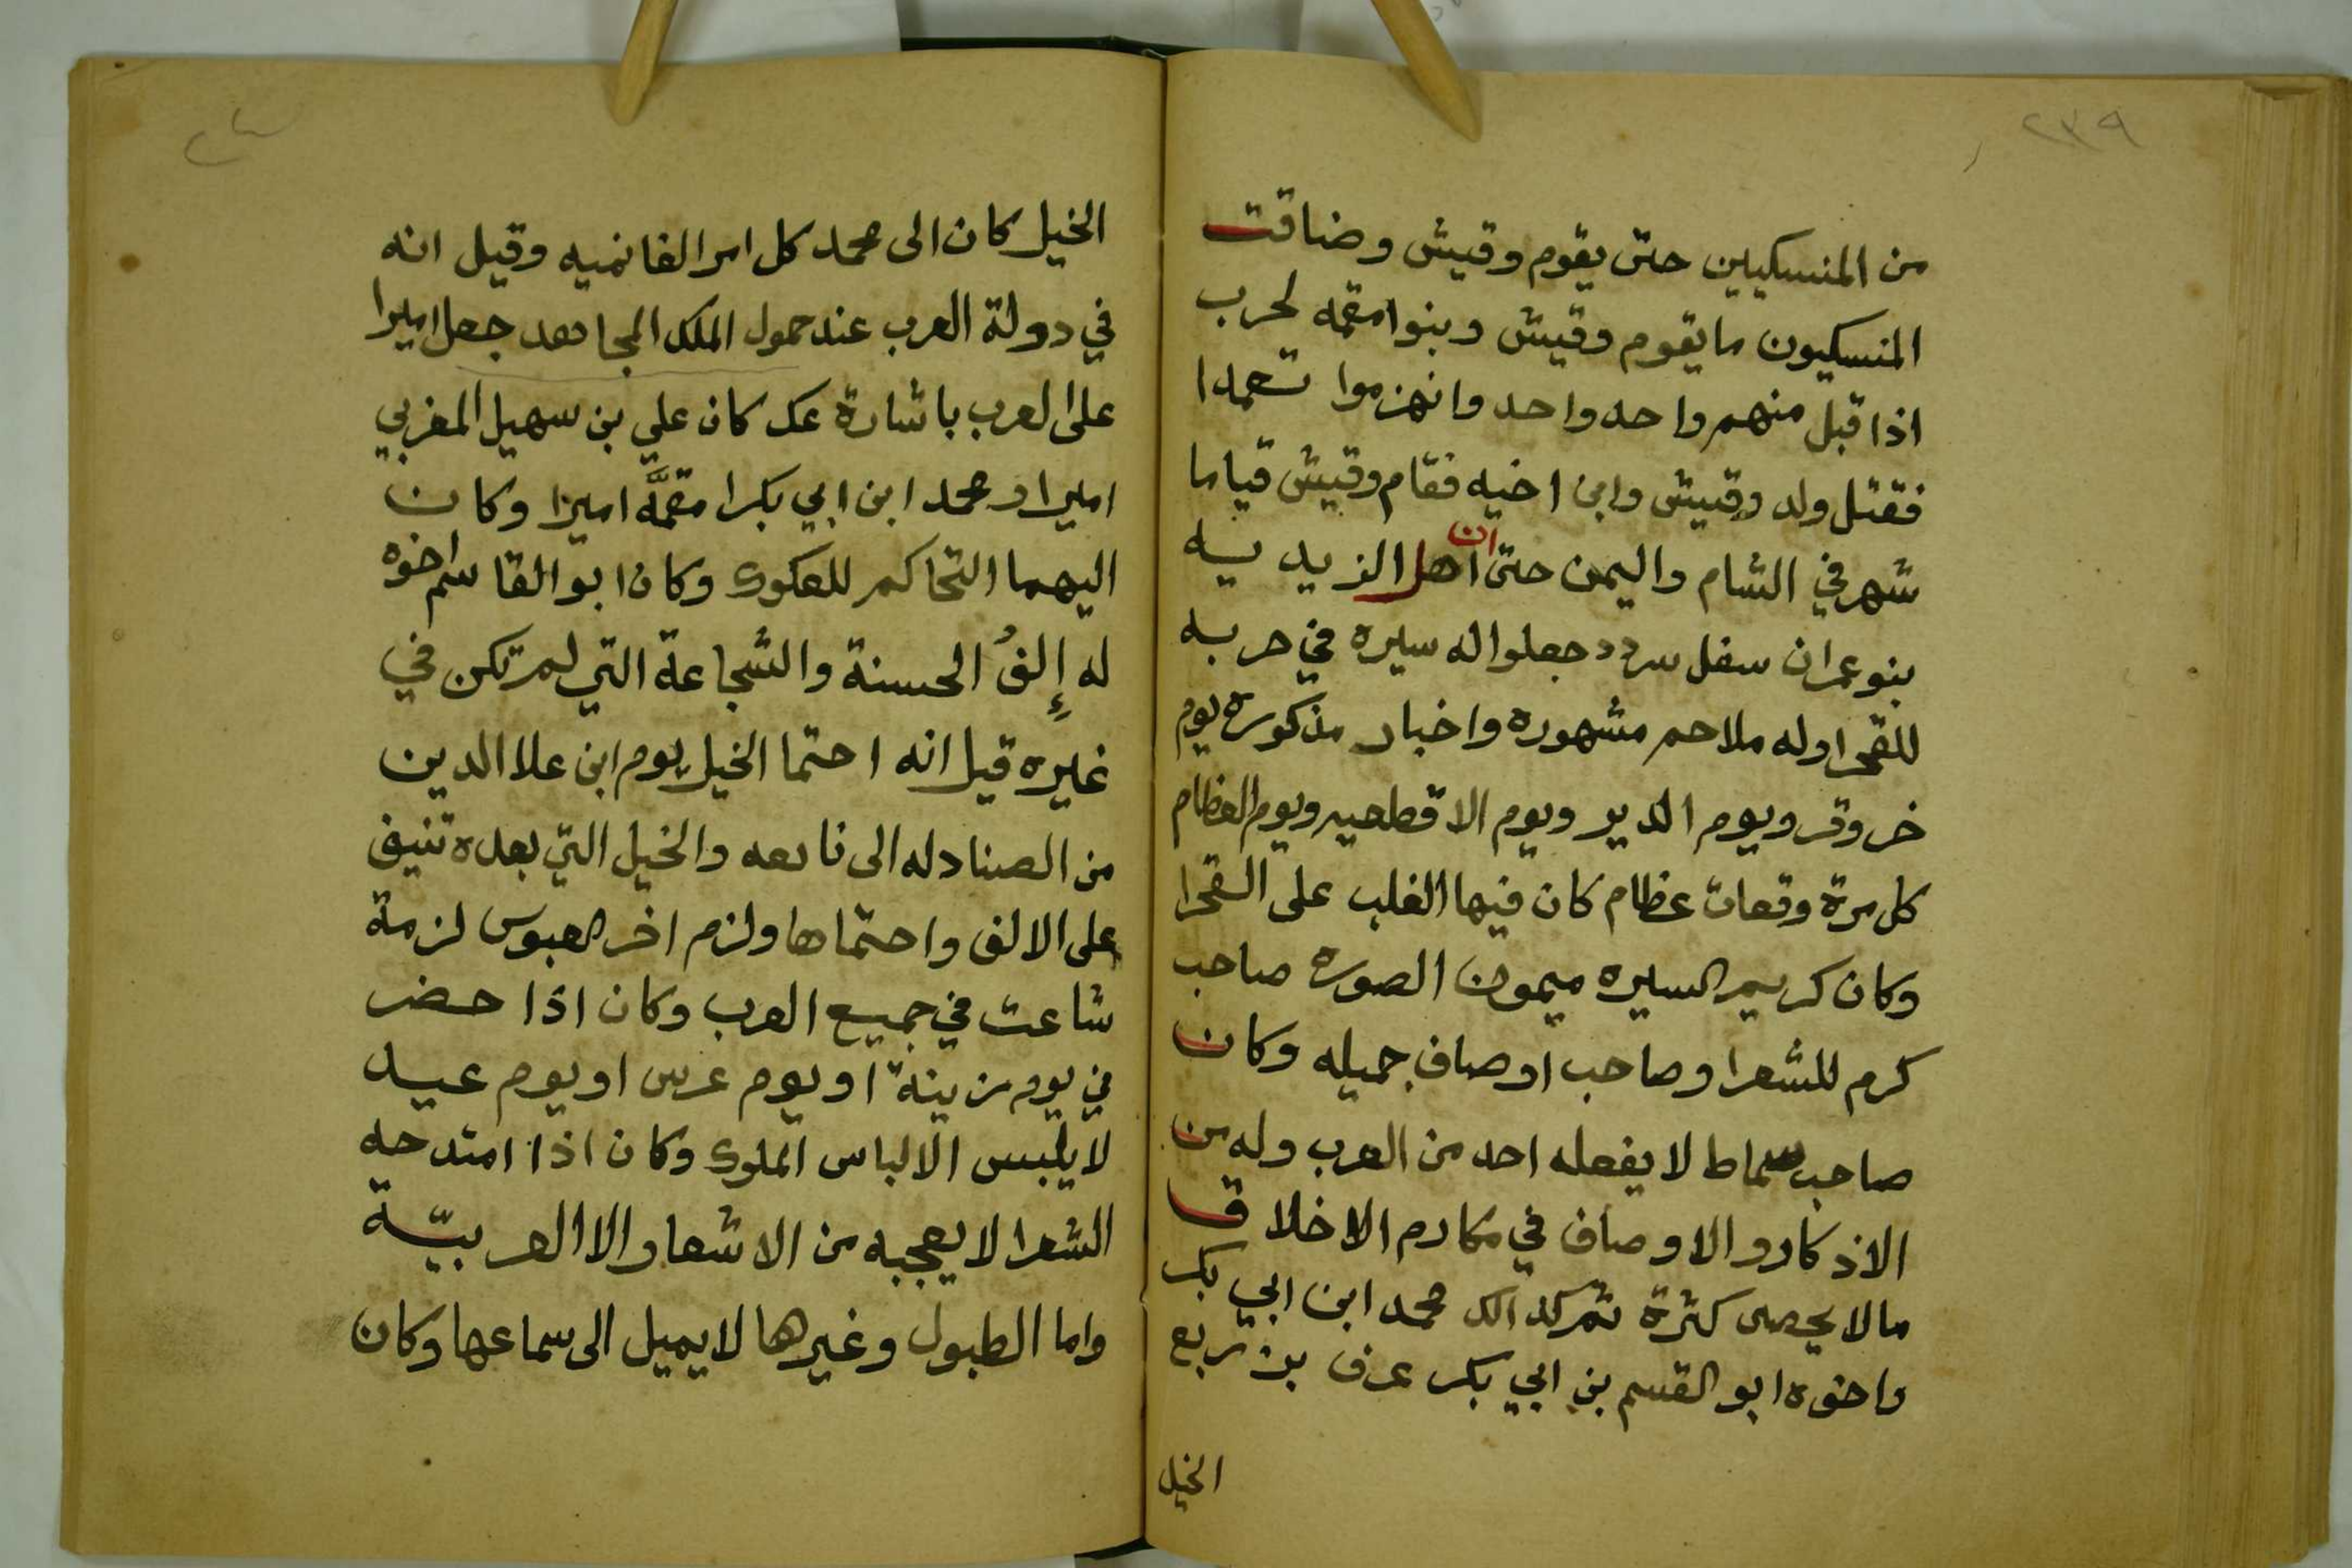 ٢٣٩
من المنسكيين حتى يقوم وقيش وضاقت
المنسكيون ما يقوم وقيش وبنوا مقمه لحرب
اذا قبل منهم واحد واحد وانهزموا تعمدا
فقتل ولد وقيش وابن اخيه فقام وقيش قياما
شهر في الشام واليمن حتى ان اهل الزيديه
بنو عمران سفل سردد جعلوا له سيره في حربه
للقحرا وله ملاحم مشهوره واخبار مذكوره يوم
خروقر ويوم الدير ويوم الاقطحيه ويوم العظام
كل مرة وقعات عظام كان فيها الغلب على القحرا
وكان كريم السيره ميمون الصوره صاحب
كرم للشعرا وصاحب اوصاف جميله وكان
صاحب سماط لا يفعله احد من العرب وله من
الاذكار والاوصاف في مكارم الاخلاق
مالا يحصى كثرة محمد ابن ابي بكر
واخوه ابو القسم بن ابي بكر عرف بن ربع
الخيل
الخيل كان الى محمد كل امر الغانميه وقيل انه
في دولة العرب عند حمول الملك المجاهد جعل اميرا
على العرب باشارة عك كان علي بن سهيل المغربي
اميرا ومحمد ابن ابي بكرا مقمَّه اميرا وكان
اليهما التحاكم للعكوك وكان ابو القاسم اخوه
له إلفُ الحسنة والشجاعة التي لم تكن في
غيره قيل انه احتما الخيل يوم ابن علا الدين
من الصنادله الى نابعه والخيل التي بعده تنيف
على الالف واحتماها ولزم اخر العبوس لزمة
شاعت في جميع العرب وكان اذا حضر
في يوم زينة او يوم عرس او يوم عيد
لا يلبس الا لباس الملوك وكان اذا امتدحه
الشعرا لا يعجبه من الاشعار الا العربيّة
واما الطبول وغيرها لا يميل الى سماعها وكان